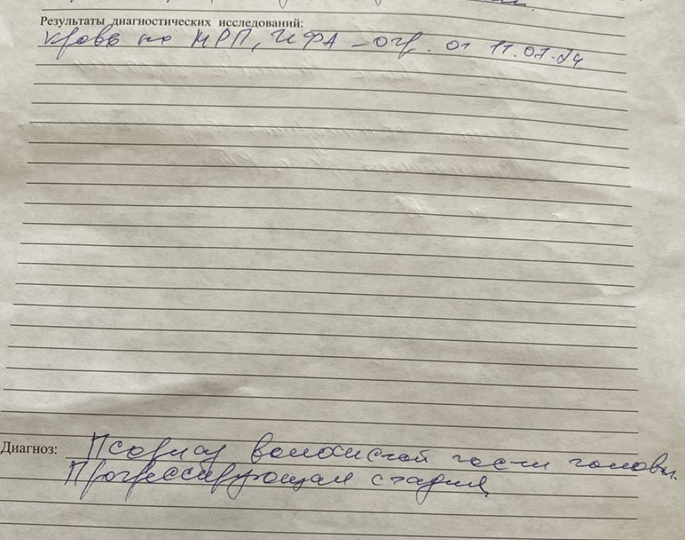 Результаты диагностических исследований:
Кровь на МРП, ИФА – отр. от 11.07.24
Диагноз: Псориаз волосистой части головы.
Прогрессирующая стадия